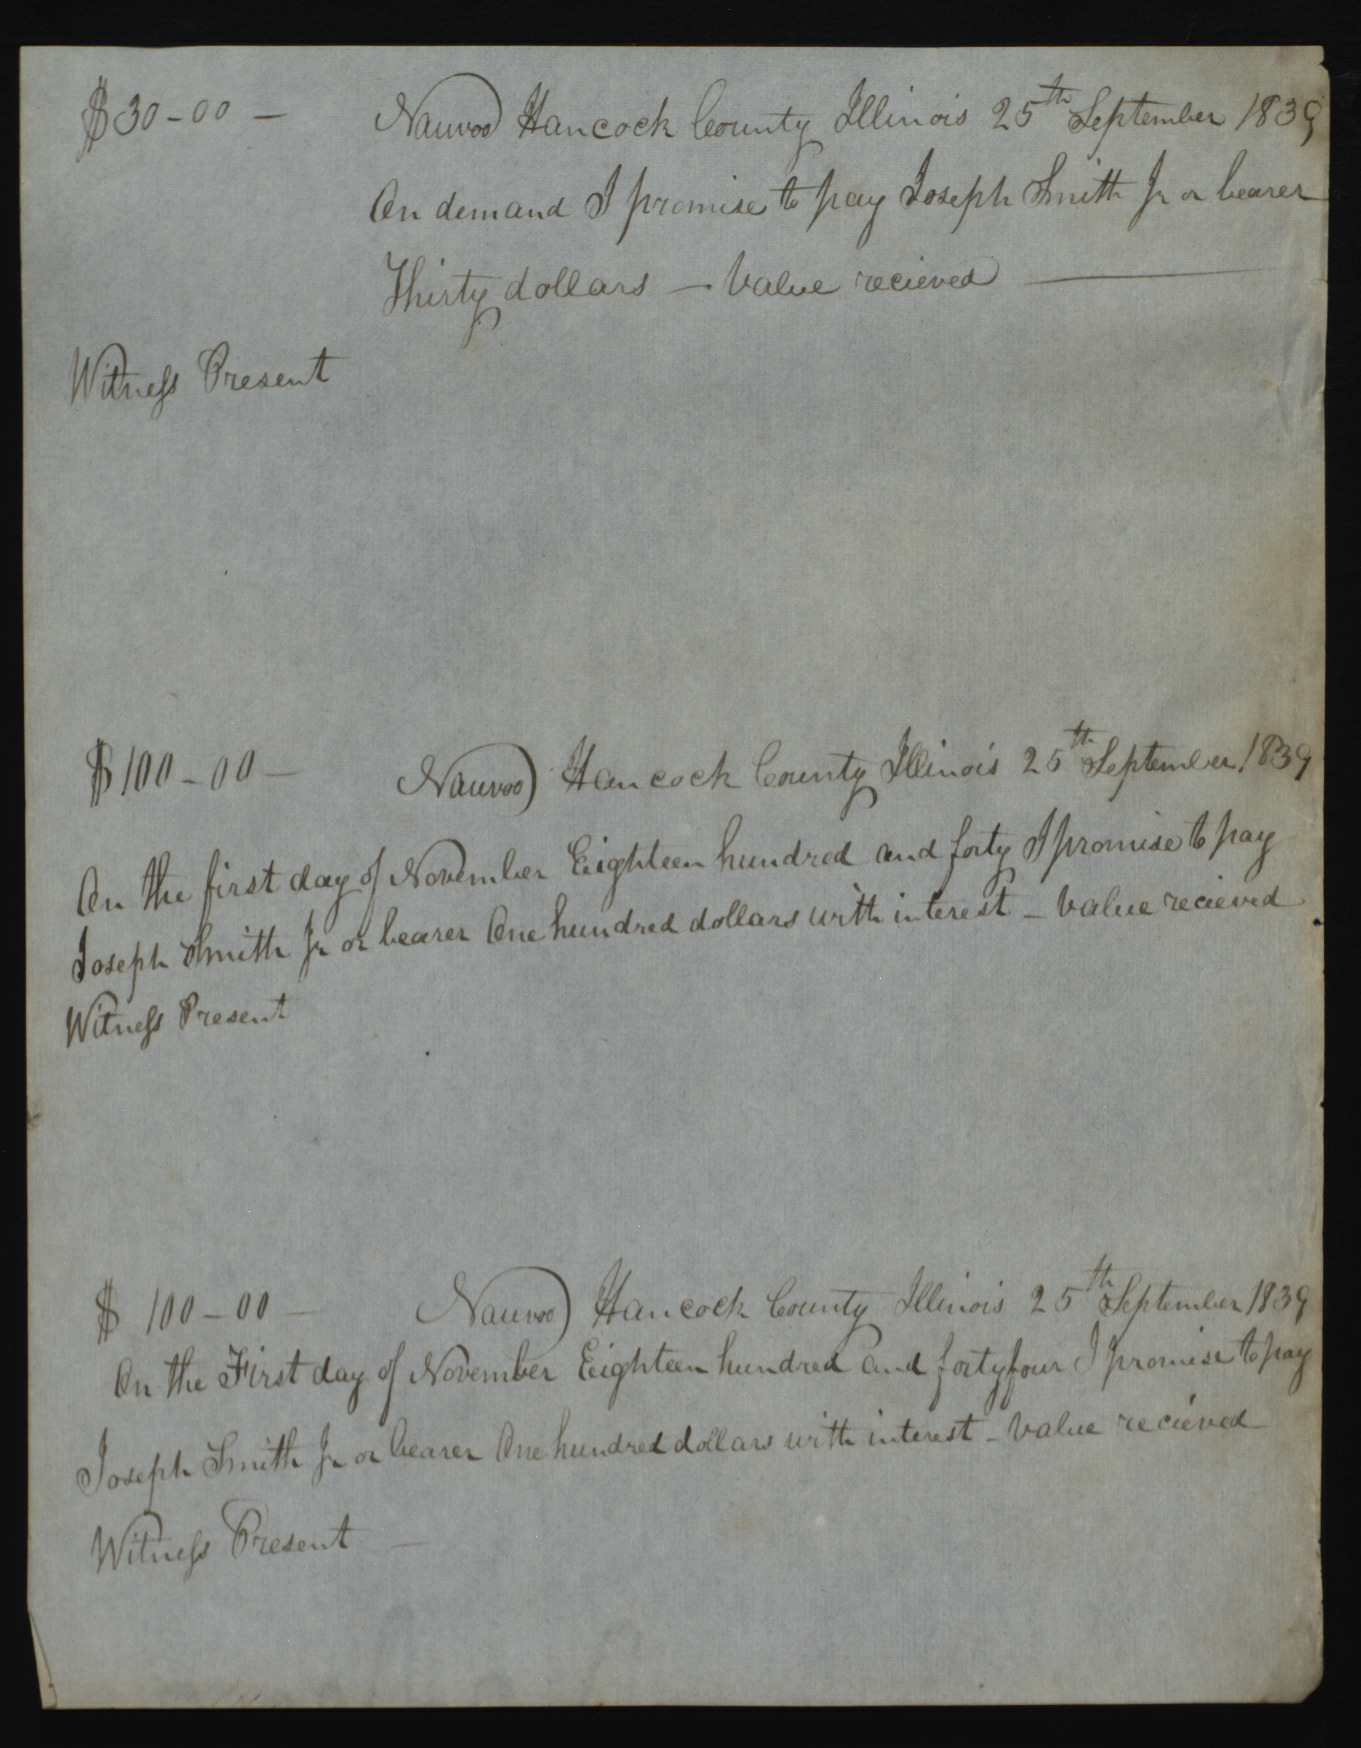 $30-00 — Nauvoo Hancock County Illinois 25th September 1839
On demand I promise to pay Joseph Smith Jr or bearer
Thirty dollars — Value recieved —
Witness Present
$100-00 — Nauvoo) Hancock County Illinois 25th September 1839
On the first day of November Eighteen hundred and forty I promise to pay
Joseph Smith Jr or bearer One hundred dollars with interest — Value recieved
Witness Present
$ 100-00 — Nauvoo) Hancock County Illinois 25th September 1839
On the First day of November Eighteen hundred and fortyfour I promise to pay
Joseph Smith Jr or bearer One hundred dollars with interest — Value recieved
Witness Present —